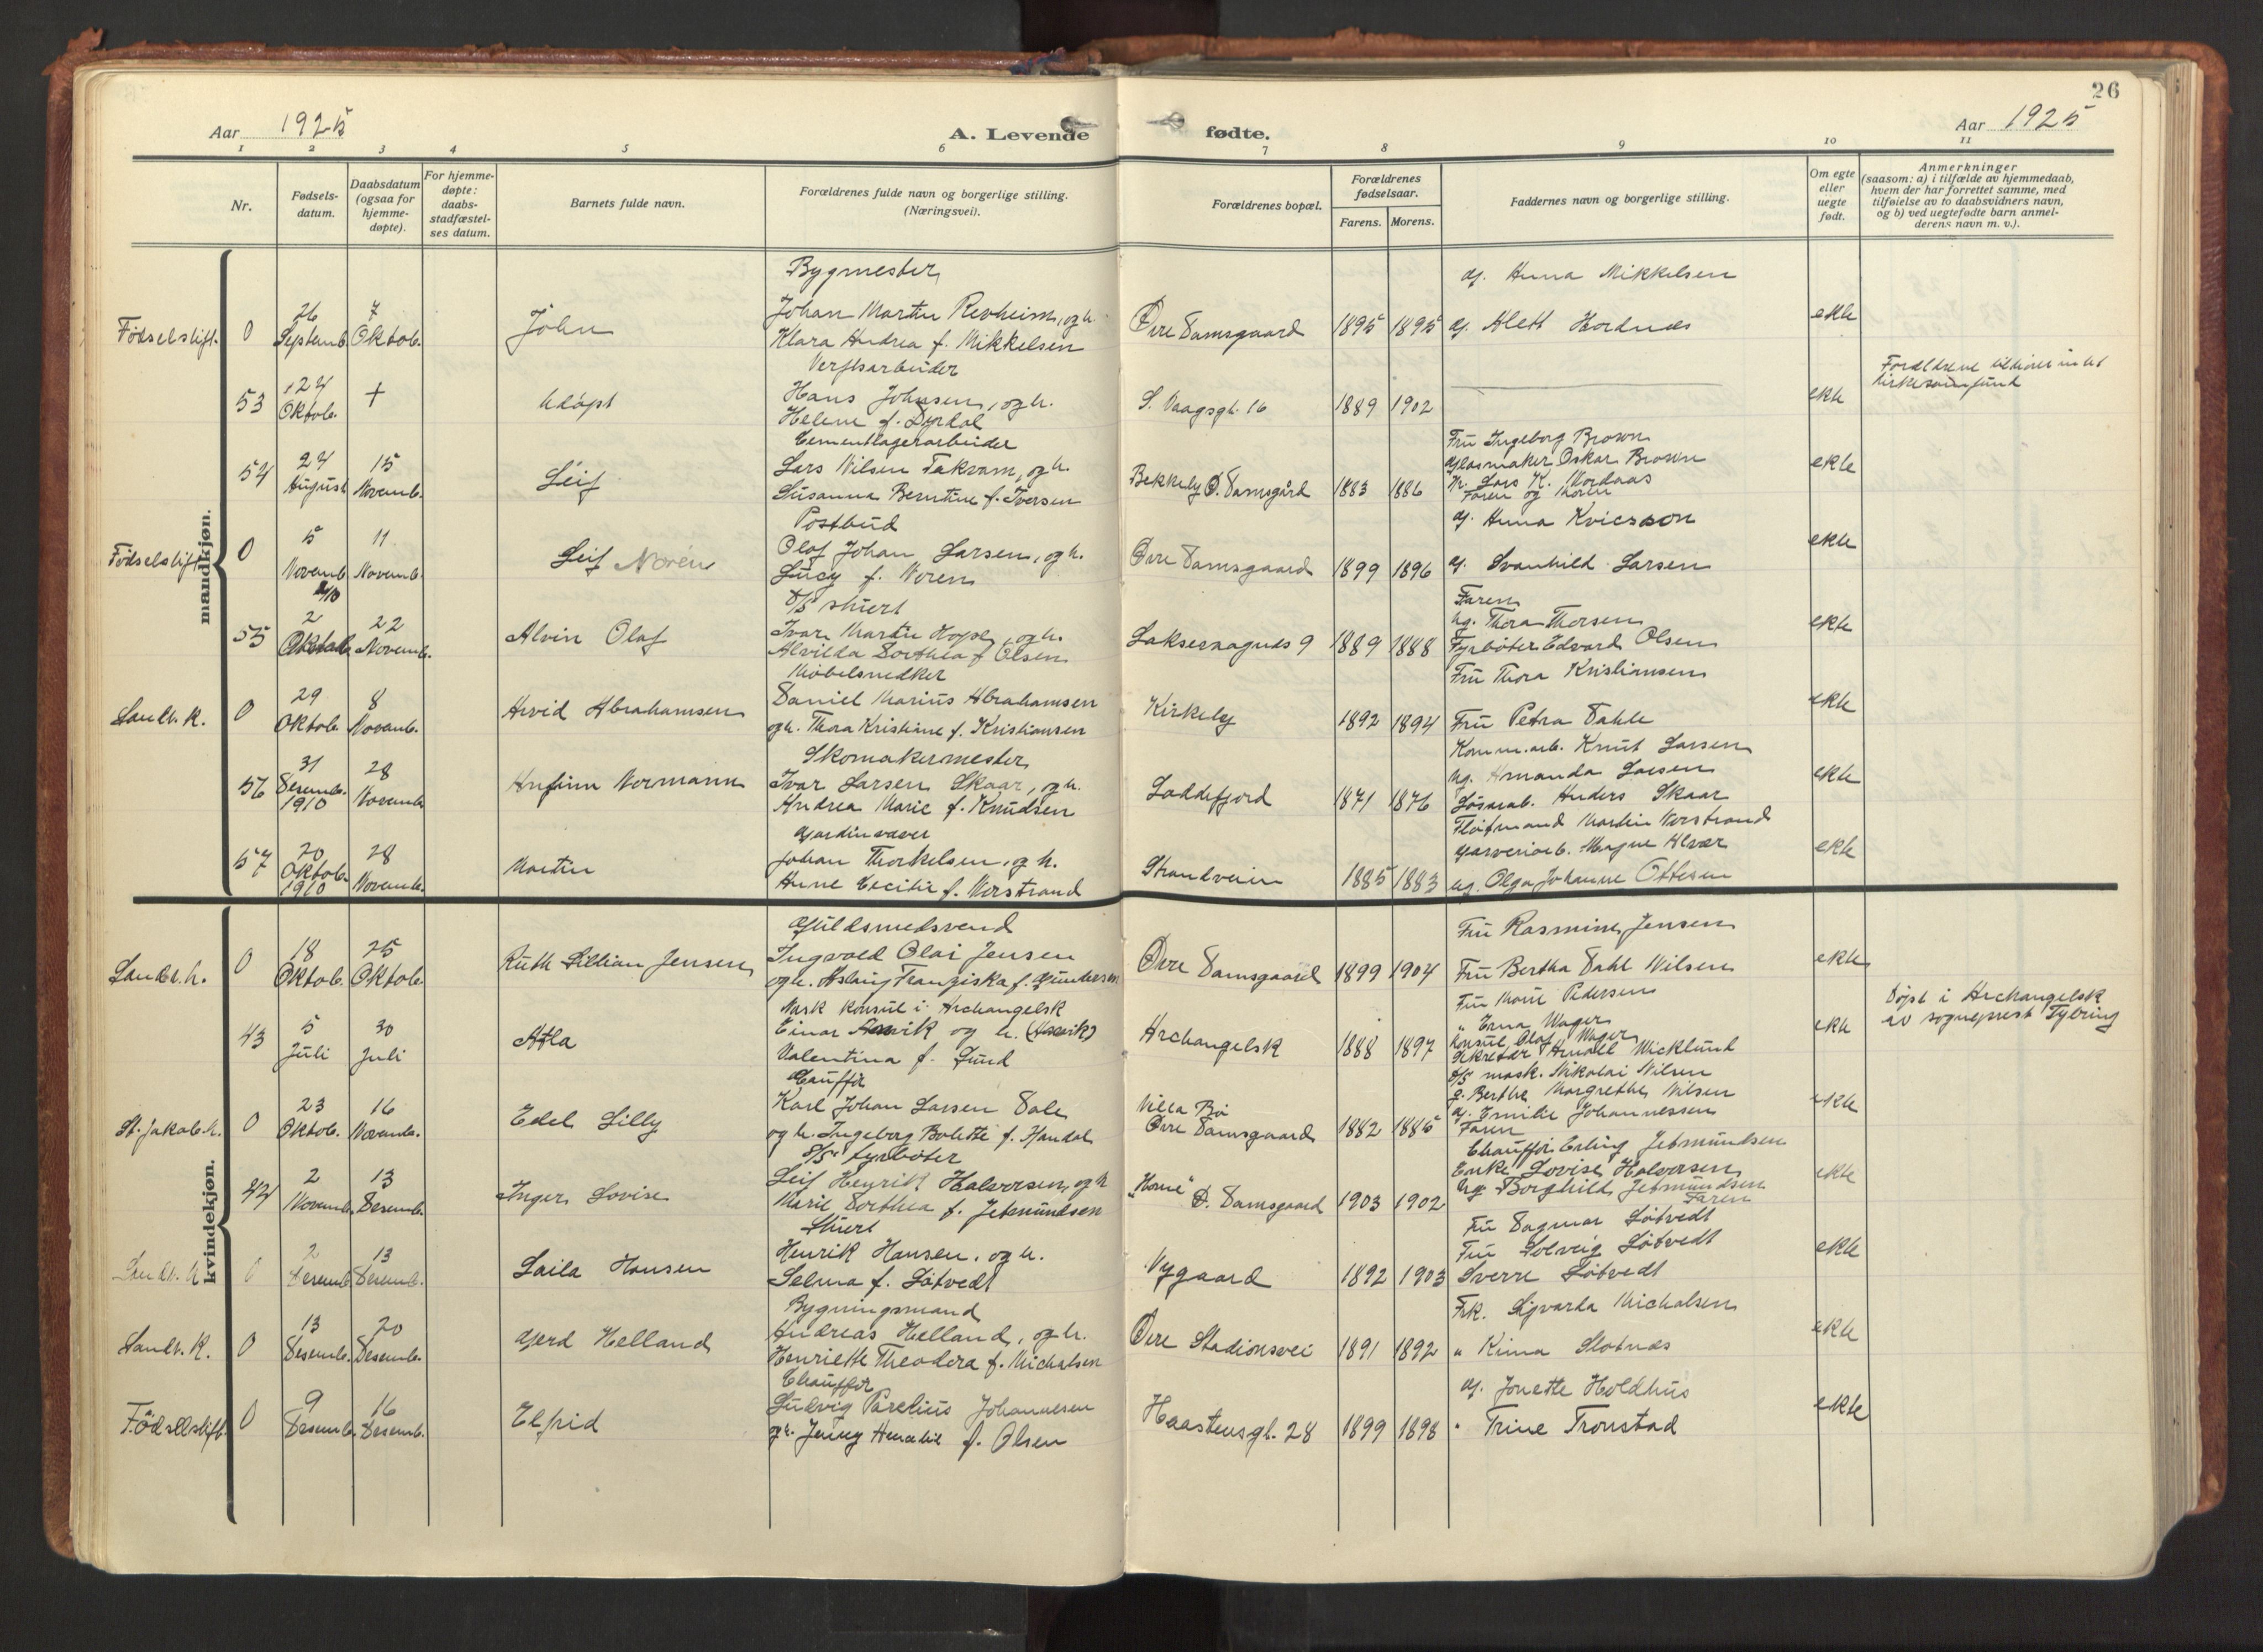 26
Aar 1925
A. Levende fødte.
Aar 1925
1 2 3 4 5 6 7 8 9 10 11
Nr.
Fødsels-
datum.
Daabsdatum
(ogsaa for
hjemme-
døpte).
For hjemme-
døpte:
daabs-
stadfæstel-
ses datum.
Barnets fulde navn.
Forældrenes fulde navn og borgerlige stilling.
(Næringsvei).
Forældrenes bopæl.
Forældrenes
fødselsaar.
Farens. Morens.
Faddernes navn og borgerlige stilling.
Om egte
eller
uegte
født.
Anmerkninger
(saasom: a) i tilfælde av hjemmedaab,
hvem der har forrettet samme, med
tilføielse av to daabsvidners navn,
og b) ved uegtefødte barn anmel-
derens navn m. v.).
mandkjøn.
Fødselstift. 0
26 Septemb.
7 Oktob.
John
Bygmester
Johan Martin Revheim, og h.
Klara Andrea f. Mikkelsen
Øvre Damsgaard
1895 1895
Gj. Anna Mikkelsen
Gj. Alett Hordnæs
ekte
53
24 Oktob.
+
Udøpt
Verftsarbeider
Hans Johnsen, og h.
Helene f. Dyrdal
S. Vaagsgt. 16
1889 1902
ekte
Forældrene tilhører intet
kirkesamfund
54
24 August
15 Novemb.
Leif
Cementlagerarbeider
Lars Nilsen Takvam, og h.
Susanna Berntine f. Iversen
Bekkely Ø. Damsgård
1883 1886
Fru Ingeborg Brown
Glasmaker Oskar Brown
Hr. Lars K. Nordaas
Faren og Moren
ekte
Fødselstift. 0
5 Novemb.
11 Novemb.
Leif Norén
Postbud
Olaf Johan Larsen, og h.
Lucy f. Noren
Øvre Damsgaard
1899 1896
Gj. Anna Kvicsson
Gj. Svanhild Larsen
ekte
55
2 Oktob.
22 Novemb.
Alvin Olaf
D/S stuert
Ivar Martin Hope, og h.
Alvilda Dorthea f. Olsen
Laksevaagnes 9
1889 1888
Faren
Ug. Thora Thorsen
Fyrbøter Edvard Olsen
ekte
Sandv. K. 0
29 Oktob.
8 Novemb.
Arvid Abrahamsen
Møbelsnedker
Daniel Marius Abrahamsen
og h. Thora Kristiane f. Kristiansen
Kirkely
1892 1894
Fru Thora Kristiansen
Fru Petra Dahle
ekte
56
31 Desemb. 1910
28 Novemb.
Arnfinn Normann
Skomakermester
Ivar Larsen Skaar, og h.
Andrea Marie f. Knudsen
Loddefjord
1871 1876
Komm.arb. Knut Larsen
Ug. Amanda Larsen
Løsarb. Anders Skaar
ekte
57
20 Oktob. 1910
28 Novemb.
Martin
Gardinvæver
Johan Thorkelsen, og h.
Anne Cecilie f. Norstrand
Strandveien
1885 1883
Fløtmand Martin Norstrand
Garveriarb. Magne Alvær
ug. Olga Johanne Ottesen
ekte
kvindekjøn.
Sandv. k. 0
18 Oktob.
25 Oktob.
Ruth Lillian Jensen
Guldsmedsvend
Ingvald Olai Jensen
og h. Aslaug Franziska f. Gundersen
Øvre Damsgaard
1899 1904
Fru Rasmine Jensen
Fru Bertha Dahl Nilsen
ekte
43
5 Juli
30 Juli
Atla
Norsk konsul i Archangelsk
Einar Anvik og h.
Valentina f. Lund
Archangelsk
1888 1897
Fru Marie Pedersen
" Erna Wager
Konsul Olaf Wager
Sekretær Arnold Wicklund
ekte
Døpt i Archangelsk
av sogneprest Fybring
St. Jakob k. 0
23 Oktob.
16 Novemb.
Edel Lilly
Chauffør
Karl Johan Larsen Dale
og h. Ingeborg Bolette f. Handal
Villa Bø
Øvre Damsgaard
1882 1885
D/S mask. Nikolai Nilsen
g. Berthe Margrethe Nilsen
g. Emilie Johannessen
Faren
ekte
44
2 Novemb.
13 Desemb.
Inger Lovise
D/S fyrbøter
Leif Henrik Halvorsen, og h
Marie Dorthea f. Jetmundsen
"Home" Ø. Damsgaard
1903 1902
Chauffør Erling Jetmundsen
Enke Lovise Halvorsen
Ug Borghild Jetmundsen
Faren
ekte
Sandv. k. 0
2 Desemb.
13 Desemb.
Laila Hansen
Stuert
Henrik Hansen, og h.
Selma f. Løtvedt
Nygaard
1892 1903
Fru Dagmar Løtvedt
Fru Solveig Løtvedt
Sverre Løtvedt
ekte
Sandv. K. 0
13 Desemb.
20 Desemb.
Gjerd Helland
Bygningsmand
Andreas Helland, og h.
Henriette Theodora f. Michalsen
Øvre Stadionsvei
1891 1892
Frk. Sigvarda Michalsen
" Rima Slotnæs
ekte
Fødselstift. 0
9 Desemb.
16 Desemb.
Elfrid
Chauffør
Ludvig Parelius Johannesen
og h. Jenny Amalie f. Olsen
Haasteinsgt. 28
1899 1898
Gj. Jonette Holdhus
" Trine Tronstad
ekte